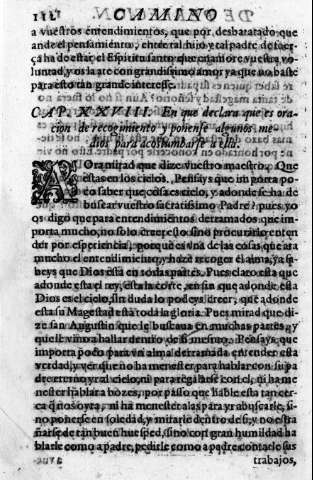 CAMINO
a vuestros entendimientos, que por desbaratado que
ande el pensamiento, entre tal hijo y tal padre de fuer-
ça ha de estar el Espiritu santo, que enamore vuestra vo
luntad, y os la ate con grandissimo amor, ya que no baste
para esto tan grande interesse.
CAP. XXVIII. En que declara que es ora
cion de recogimiento y ponense algunos me
dios para acostumbarse a ella.
AOra mirad que dize vuestro maestro. Que
estas en los cielos. Pensays que importa po
co saber que cosa es cielo, y adonde se ha de
buscar vuestro sacratissimo Padre? pues yo
os digo que para entendimientos derramados que im-
porta mucho, no solo creer esto, sino procurarlo enten
der por esperiencia, porque es vna de las cosas que ata
mucho el entendimiento, y haze recoger el alma, ya sa
beys que Dios está en todas partes. Pues claro esta que
adonde esta el rey, esta la corte, en fin que adonde esta
Dios es el cielo, sin duda lo podeys creer, que adonde
esta su Magestad está toda la gloria. Pues mirad que di-
ze san Augustin que le buscaua en muchas partes, y
que le vino a hallar dentro de si mesmo. Pensays, que
importa poco para vn alma derramada entender esta
verdad, y ver que no ha menester para hablar con su pa
dre eterno, yr al cielo, ni para regalarse con el, ni ha me
nester hablar a bozes, por passo que hable esta tan cer-
ca q̃ nos oyra, ni ha menester alas para yr a buscarle, si-
no ponerse en soledad, y mirarle dentro de si, y no estra
ñarse de tan buen huesped, sino con gran humildad ha
blarle como a padre, pedirle como a padre, contarle sus
trabajos,